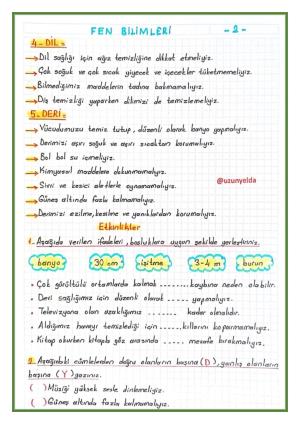 FEN BİLİMLERİ -2-
4-DİL=
→Dil sağlığı için ağız temizliğine dikkat etmeliyiz.
→Çok soğuk ve çok sıcak yiyecek ve içecekler tüketmemeliyiz.
→Bilmediğimiz maddelerin tadına bakmamalıyız.
→Diş temizliği yaparken dilimizi de temizlemeliyiz.
5-DERİ=
→Vücudumuzu temiz tutup, düzenli olarak banyo yapmalıyız.
→Derimizi aşırı soğuk ve aşırı sıcaktan korumalıyız.
→Bol bol su içmeliyiz.
→Kimyasal maddelere dokunmamalıyız.
→Sivri ve kesici aletlerle oynamamalıyız.
@uzunyelda
→Güneş altında fazla kalmamalıyız.
→Derimizi ezilme, kesilme ve yanıklardan korumalıyız.
Etkinlikler
1. Aşağıda verilen ifadeleri, boşluklara uygun şekilde yerleştiriniz.
banyo 30 cm işitme 3-4 m burun
• Çok gürültülü ortamlarda kalmak ........ kaybına neden olabilir.
• Deri sağlığımız için düzenli olarak ..... yapmalıyız.
• Televizyona olan uzaklığımız ....... kadar olmalıdır.
• Aldığımız havayı temizlediği için .....kıllarını koparmamalıyız.
• Kitap okurken kitapla göz arasında ..... mesafe bırakmalıyız.
2. Aşağıdaki cümlelerden doğru olanların başına (D), yanlış olanların
başına (Y) yazınız.
( ) Müziği yüksek sesle dinlemeliyiz.
( ) Güneş altında fazla kalmamalıyız.